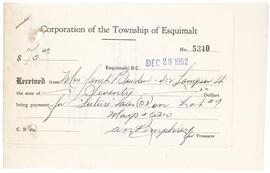 Corporation of the Township of Esquimalt
No. 5340
$ 70.00
Esquimalt, B.C. DEC 29 1952
Received from Mrs Bowden - 512 Lampson St
the sum of Seventy Dollars
being payment for "Future" Sales on Lot
Map 5210
C. B. Fo.
for Treasurer